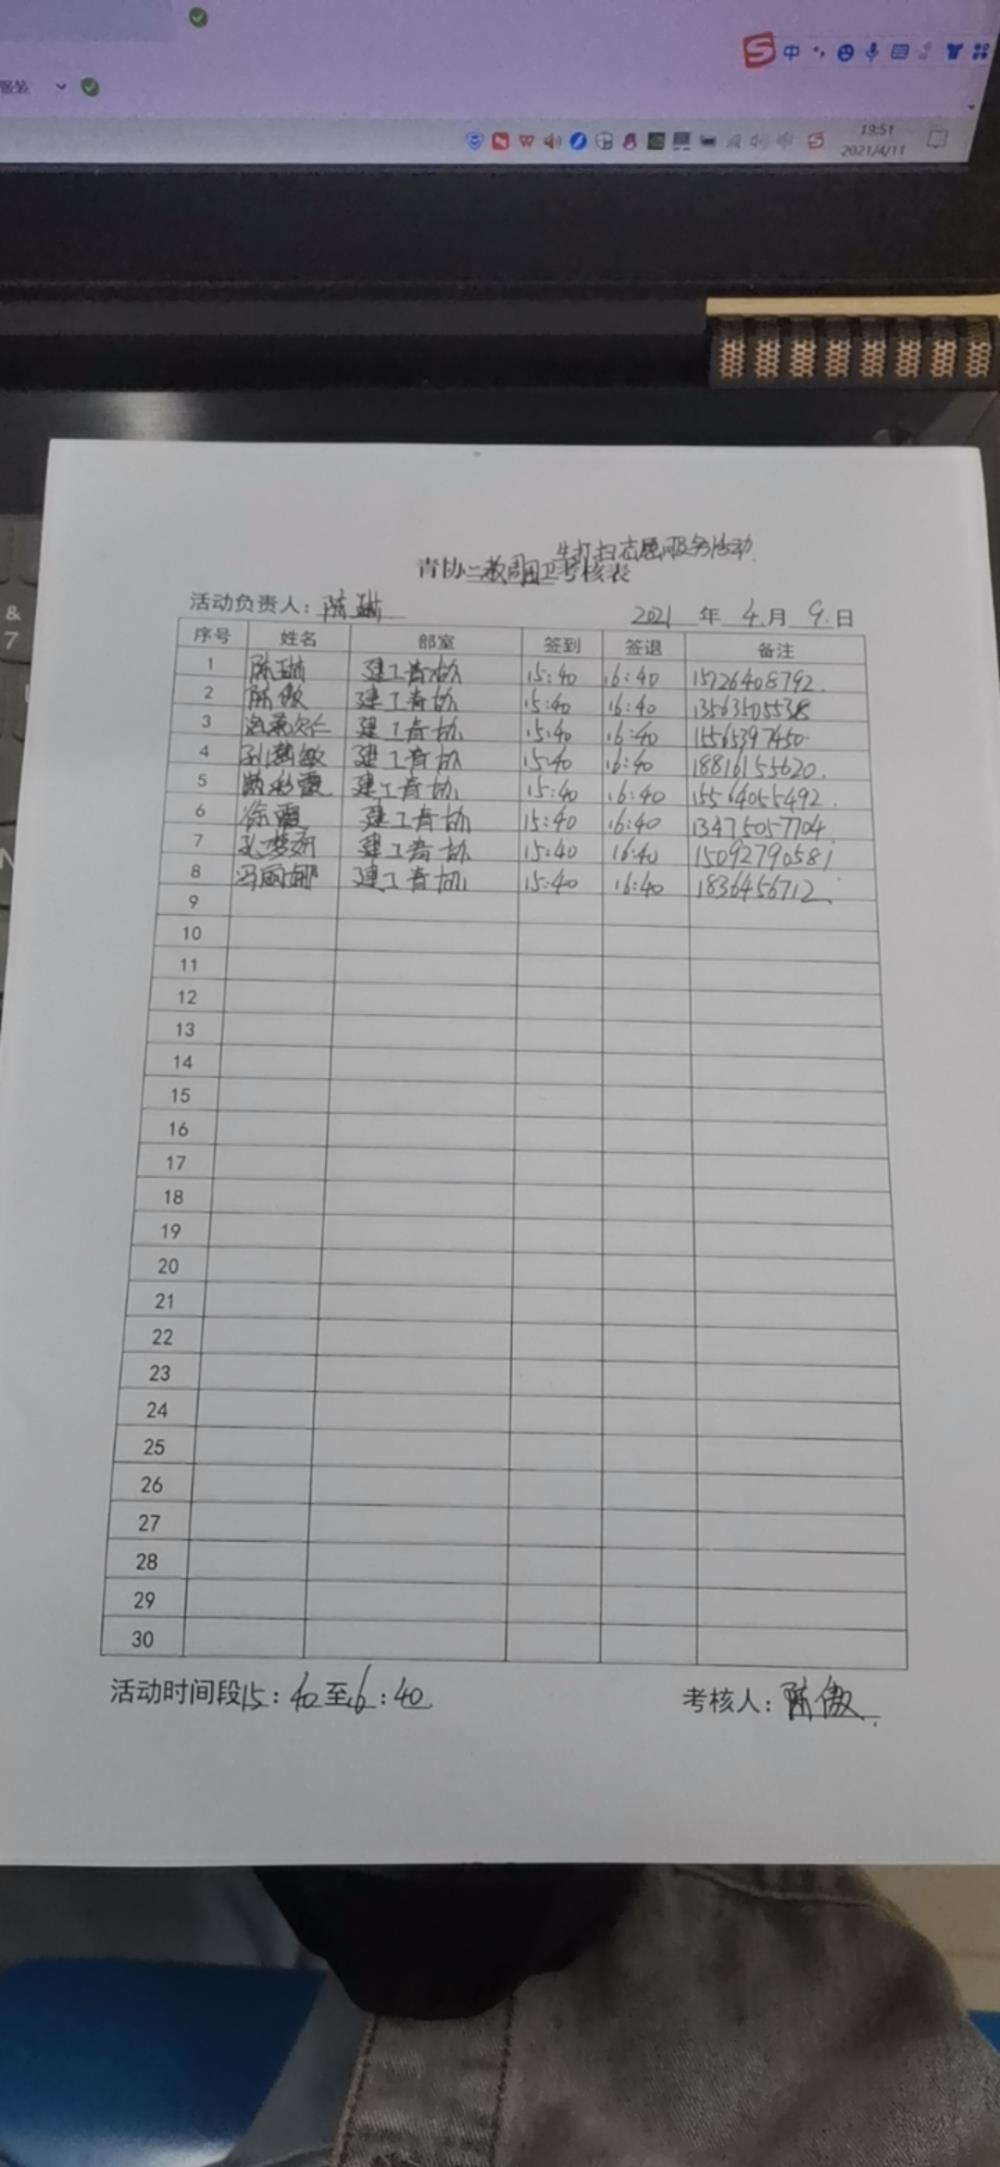 中
19:51
2021/4/11
&
7
N
生打扫志愿服务活动
青协二教周围卫考核表
活动负责人：陈琳 2021 年 4 月 9 日
序号 姓名 部室 签到 签退 备注
1 陈琳 建工青协 15:40 16:40 15726408792
2 陈傲 建工青协 15:40 16:40 13563505538
3 建工青协 15:40 16:40 15565397450
4 孔慧敏 建工青协 15:40 16:40 18816155620
5 彩霞 建工青协 15:40 16:40 15564055492
6 徐霞 建工青协 15:40 16:40 13475057704
7 孔梦妍 建工青协 15:40 16:40 15092790581
8 冯丽娜 建工青协 15:40 16:40 1836456712
9
10
11
12
13
14
15
16
17
18
19
20
21
22
23
24
25
26
27
28
29
30
活动时间段15：40至16：40 考核人：陈傲